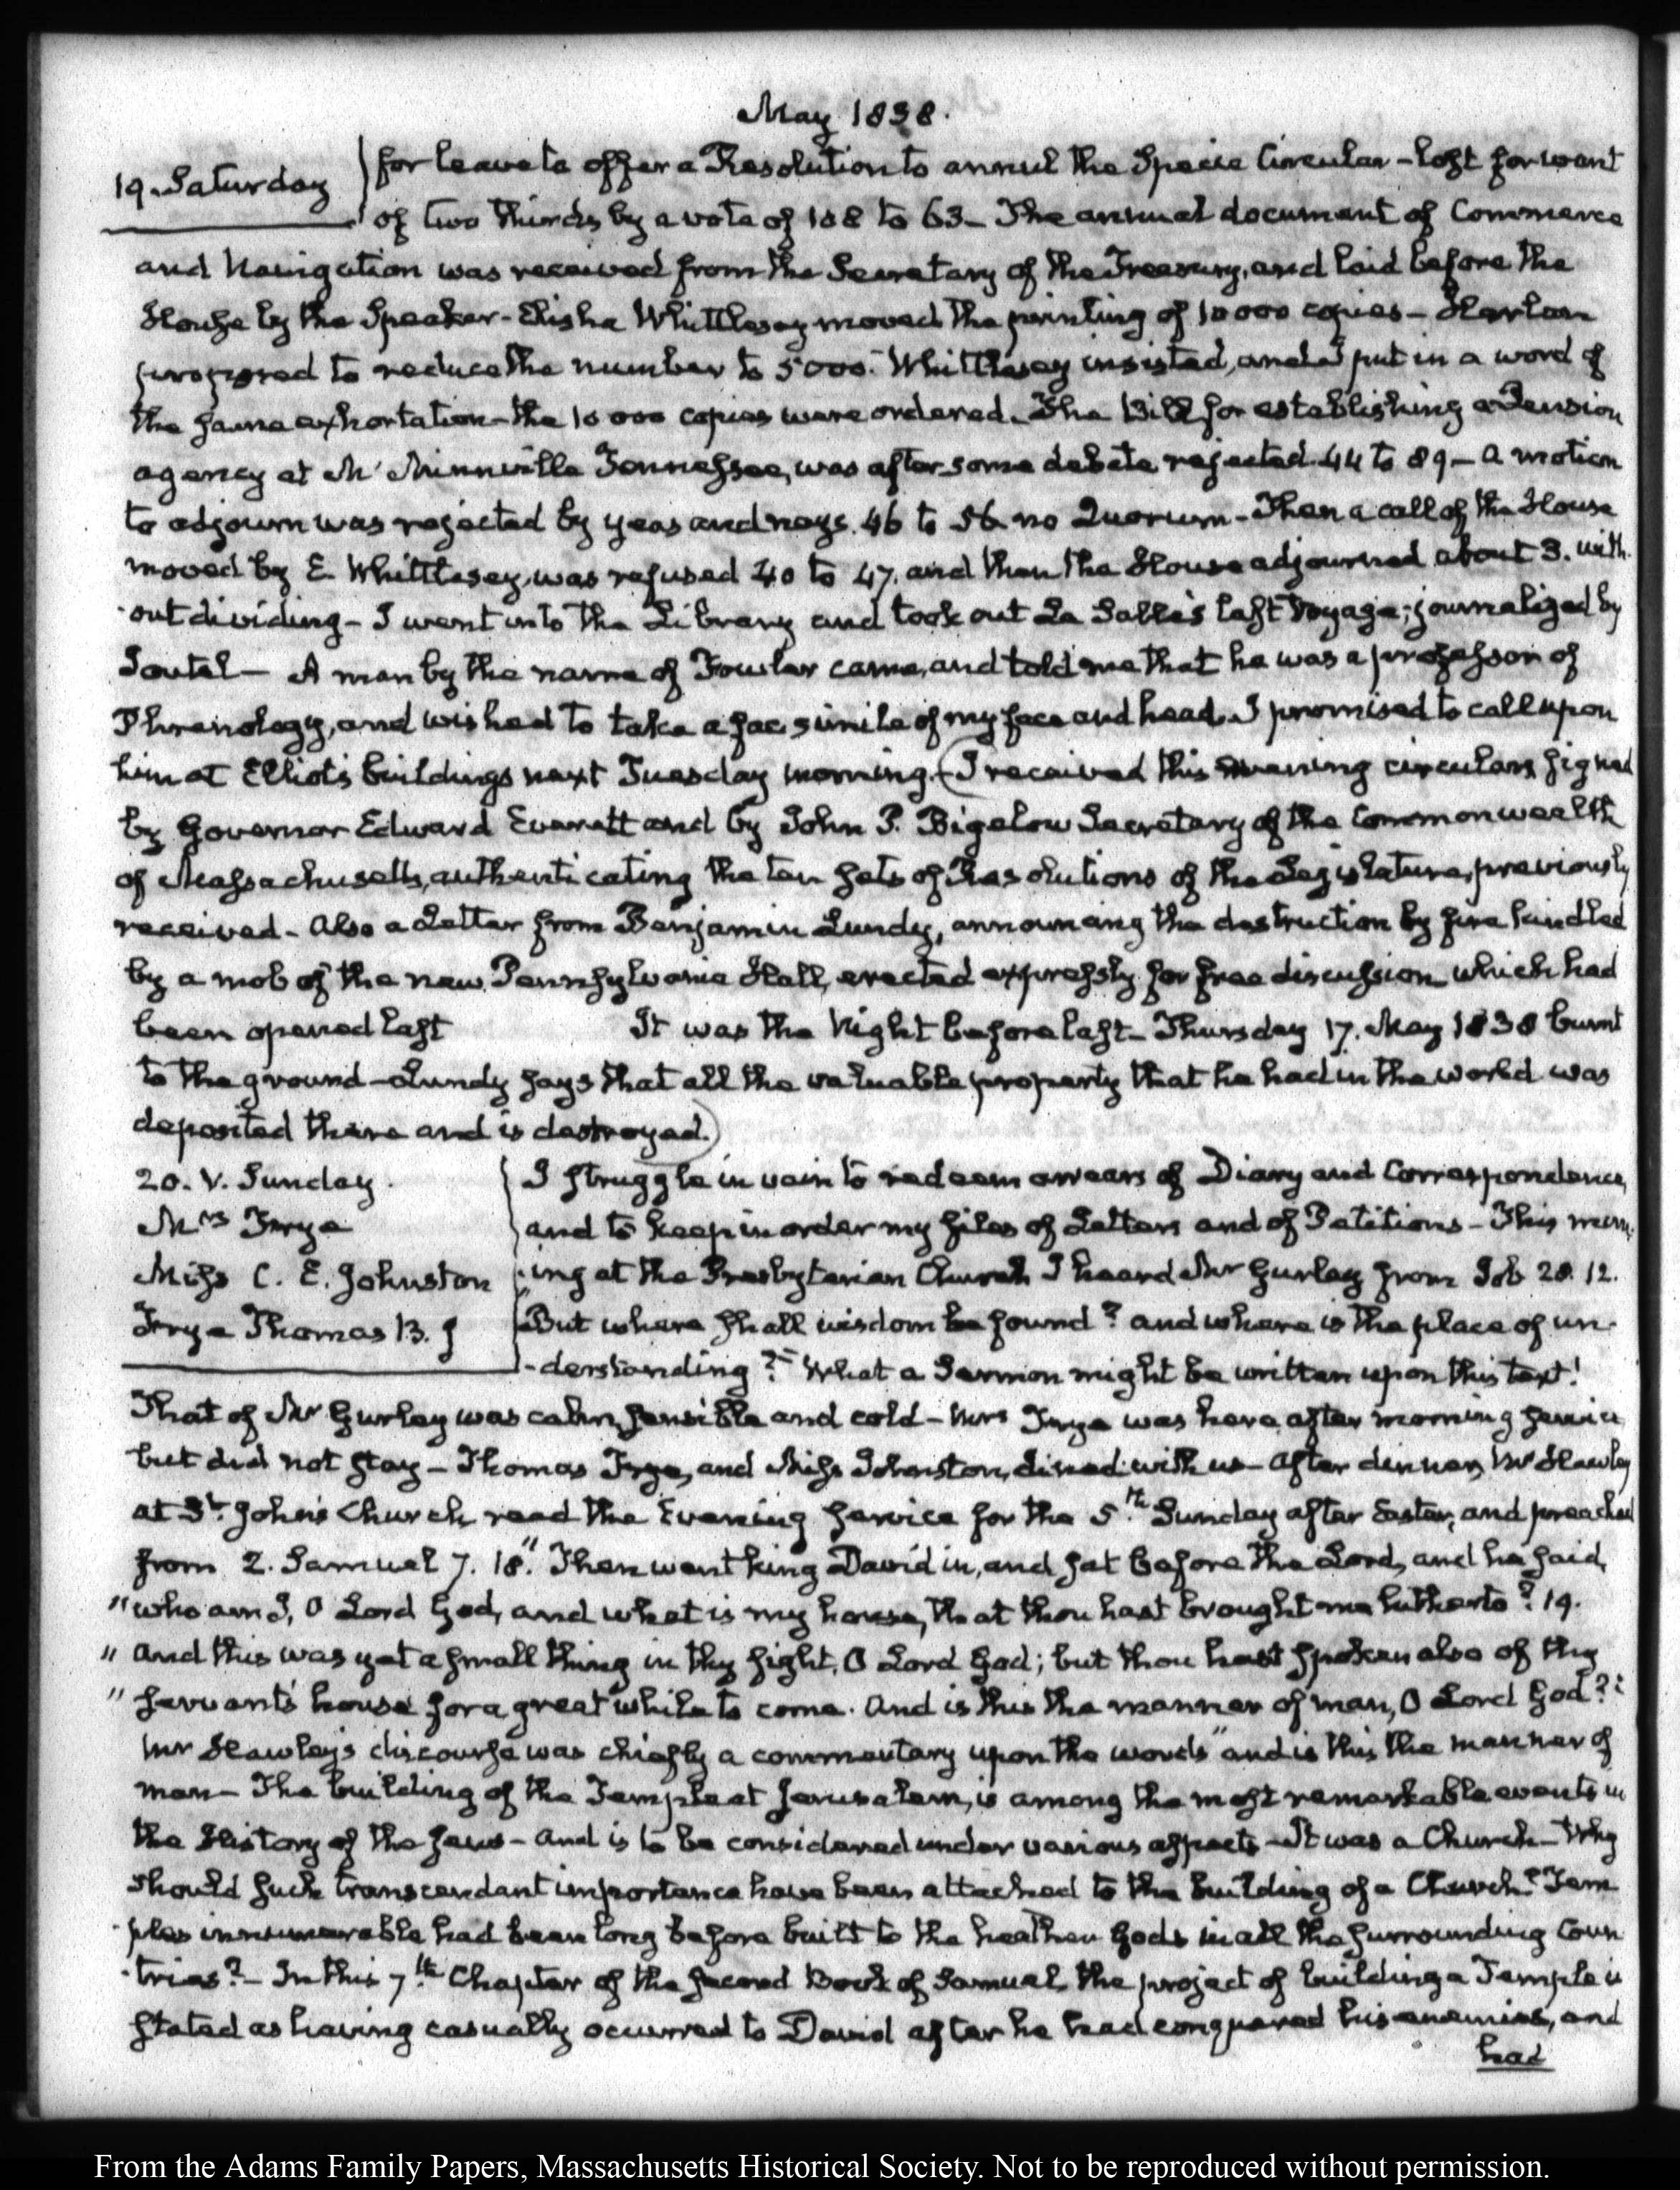 May 1838.
19. Saturday
for leave to offer a Resolution to annul the Specie Circular – lost for want
of two thirds by a vote of 108 to 63 – The annual document of Commerce
and Navigation was received from the Secretary of the Treasury, and laid before the
House by the Speaker – Elisha Whittlesey moved the printing of 10000 copies – Harlan
proposed to reduce the number to 5000. Whittlesey insisted, and I put in a word of
the same exhortation – the 10000 copies were ordered. The Bill for establishing a Pension
agency at Mc Minnville Tennessee, was after some debate rejected 44 to 89 – A motion
to adjourn was rejected by yeas and nays. 46 to 56 no Quorum – Then a call of the House
moved by E. Whittlesey, was refused 40 to 47. and then the House adjourned about 3. with
out dividing – I went into the Library and took out La Salle's last Voyage; journalized by
Joutel – A man by the name of Fowler came, and told me that he was a professor of
Phrenology, and wished to take a fac simile of my face and head. I promised to call upon
him at Elliot's buildings next Tuesday morning. (I received this evening circulars signed
by Governor Edward Everett and by John P. Bigelow Secretary of the Commonwealth
of Massachusetts, authenticating the ten sets of Resolutions of the Legislature, previously
received – Also a Letter from Benjamin Lundy, announcing the destruction by fire kindled
by a mob of the new Pennsylvania Hall, erected expressly for free discussion which had
been opened last It was the Night before last – Thursday 17. May 1838 burnt
to the ground – Lundy says that all the valuable property that he had in the world was
deposited there and is destroyed.)
20. V. Sunday.
Mrs Frye
Miss C. E. Johnston
Frye Thomas B. J
I struggle in vain to redeem arrears of Diary and Correspondence,
and to keep in order my files of Letters and of Petitions – This morn-
ing at the Presbyterian Church I heard Mr Gurley from Job 28. 12.
"But where shall wisdom be found? and where is the place of un-
-derstanding?" – What a Sermon might be written upon this text!
That of Mr Gurley was calm, sensible and cold – Mrs Frye was here after morning service
but did not stay – Thomas Frye, and Miss Johnston, dined with us – After dinner, Mr Hawley
at St. John's Church, read the Evening service for the 5th. Sunday after Easter, and preached
from 2. Samuel 7. 18. "Then went king David in, and sat before the Lord, and he said,
"who am I, O Lord God, and what is my house, that thou hast brought me hitherto? 19.
"And this was yet a small thing in thy sight, O Lord God; but thou hast spoken also of thy
"servant's house for a great while to come. And is this the manner of man, O Lord God?"
Mr Hawley's discourse was chiefly a commentary upon the words "and is this the manner of
man – The building of the Temple at Jerusalem, is among the most remarkable events in
the History of the Jews – and is to be considered under various aspects – It was a Church – Why
should such transcendant importance have been attached to the building of a Church? Tem
ples innumerable had been long before built to the heathen Gods in all the surrounding Coun
tries? – In this 7th. Chapter of the Second Book of Samuel, the project of building a Temple is
stated as having casually occurred to David after he had conquered his enemies, and
had
From the Adams Family Papers, Massachusetts Historical Society. Not to be reproduced without permission.